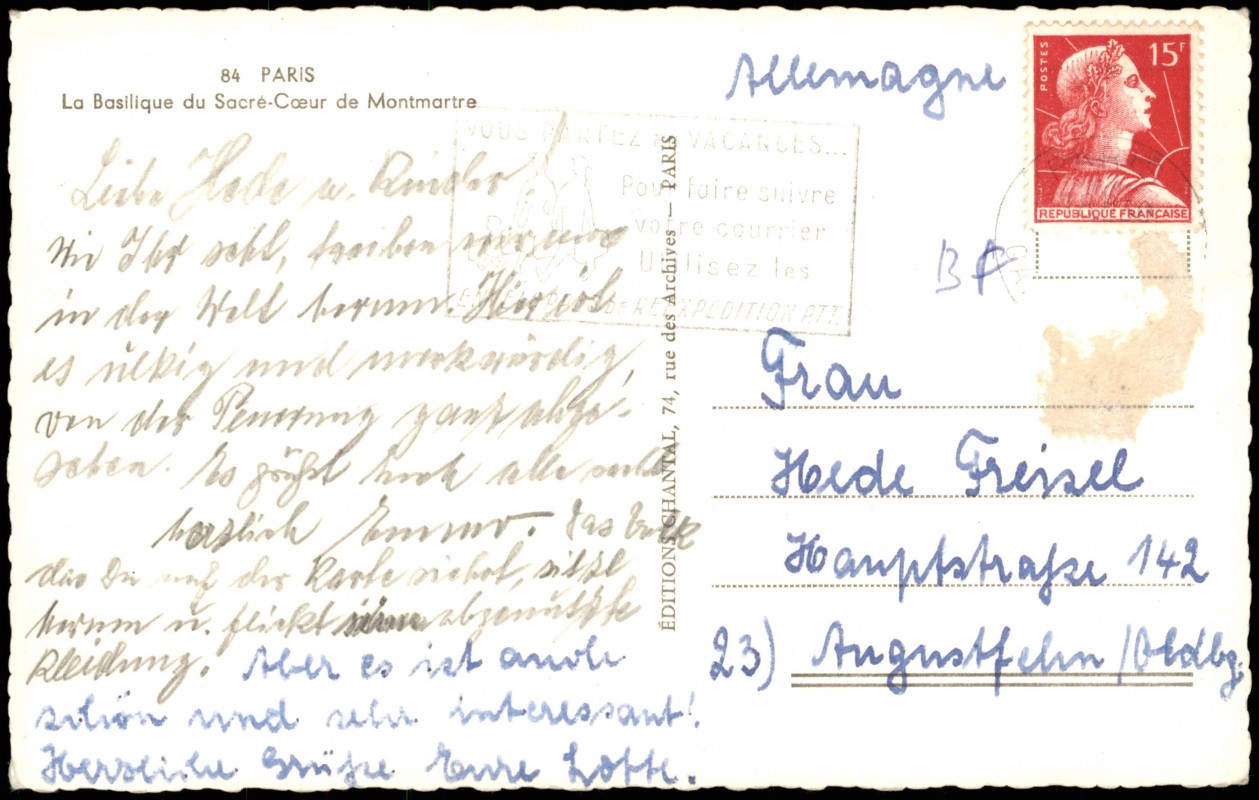 84 PARIS
La Basilique du Sacré-Cœur de Montmartre
Liebe Hede u. Kinder!
Wie Ihr seht, treiben wir uns
in der Welt herum. Hier ist
es ulkig und merkwürdig,
von der Teuerung ganz abge-
sehen. Es grüßt Euch alle recht
herzlich Emmo. Das Volk
das Du auf der Karte siehst, sitzt
herum u. flickt abgenutzte
Kleidung. Aber es ist auch
schön und sehr interessant!
Herzliche Grüße Eure Lotte.
ÉDITIONS CHANTAL, 74, rue des Archives — PARIS
VOUS PARTEZ EN VACANCES...
Pour faire suivre
votre courrier
Utilisez les
DE REEXPEDITION PTT.
Allemagne
POSTES
15F
REPUBLIQUE FRANÇAISE
Frau
Hede Freisel
Hauptstraße 142
23) Augustfehn /Oldbg.